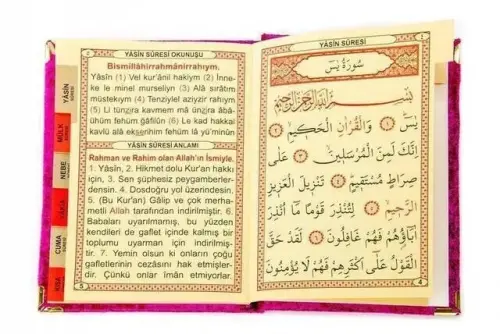 YÂSÎN SÛRESİ OKUNUŞU
Bismillâhirrahmânirrahıym.
Yâsîn (1) Vel kur'ânil hakiym (2) İnne-
ke le minel murseliyn (3) Alâ sırâtım
müstekıym (4) Tenziylel aziyzir rahıym
(5) Li tünzira kavmem mâ ünzira âbâ-
ühüm fehüm ğâfilûn (6) Le kad hakkal
kavlü alâ ekserihim fehüm lâ yü'minûn
YÂSÎN SÛRESİ ANLAMI
Rahman ve Rahim olan Allah'ın İsmiyle.
1. Yâsîn, 2. Hikmet dolu Kur'an hakkı
için, 3. Sen şüphesiz peygamberler-
densin. 4. Dosdoğru yol üzerindesin.
5. (Bu Kur'an) Gâlip ve çok merha-
metli Allah tarafından indirilmiştir. 6.
Babaları uyarılmamış, bu yüzden
kendileri de gaflet içinde kalmış bir
toplumu uyarman için indirilmiş-
tir. 7. Yemin olsun ki onların çoğu
gafletlerinin cezasını hak etmişler-
dir. Çünkü onlar iman etmiyorlar.
5
YÂSÎN
SÛRESİ
MÜLK
NEBE
VÂKIA
CUMA
KISA
YÂSÎN SÛRESİ
سُورَةُ يٰسٓ
بِسْمِ اللّٰهِ الرَّحْمٰنِ الرَّحِيمِ
يٰسٓ ﴿١﴾ وَالْقُرْاٰنِ الْحَكِيمِ ﴿٢﴾
اِنَّكَ لَمِنَ الْمُرْسَلِينَ ﴿٣﴾ عَلٰى
صِرَاطٍ مُسْتَقِيمٍ ﴿٤﴾ تَنْزِيلَ الْعَزِيزِ
الرَّحِيمِ ﴿٥﴾ لِتُنْذِرَ قَوْمًا مَٓا اُنْذِرَ
اٰبَٓاؤُهُمْ فَهُمْ غَافِلُونَ ﴿٦﴾ لَقَدْ حَقَّ
الْقَوْلُ عَلٰٓى اَكْثَرِهِمْ فَهُمْ لَا يُؤْمِنُونَ
4